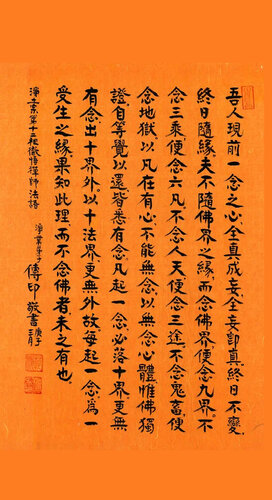 吾人現前一念之心全真成妄全妄即真終日不變
終日隨緣夫不隨佛界之緣而念佛界便念九界不
念三乘便念六凡不念人天便念三途不念鬼畜便
念地獄以凡在有心不能無念以無念心體惟佛獨
證自等覺以還皆悉有念凡起一念必落十界更無
有念出十界外以十法界更無外故每起一念為一
受生之緣果知此理而不念佛者未之有也
淨土宗第十二祖徹悟禪師法語
淨業學人傳印敬書